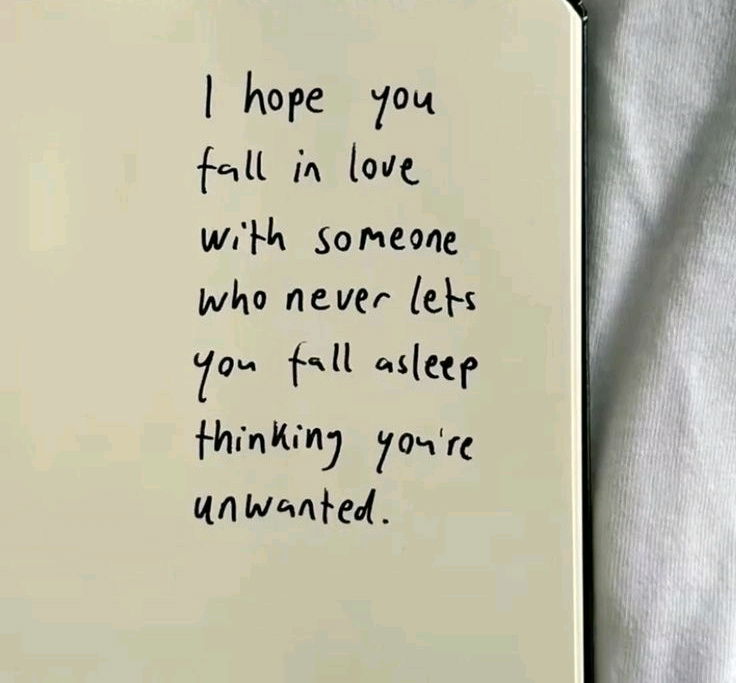 I hope you
fall in love
with someone
who never lets
you fall asleep
thinking you're
unwanted.